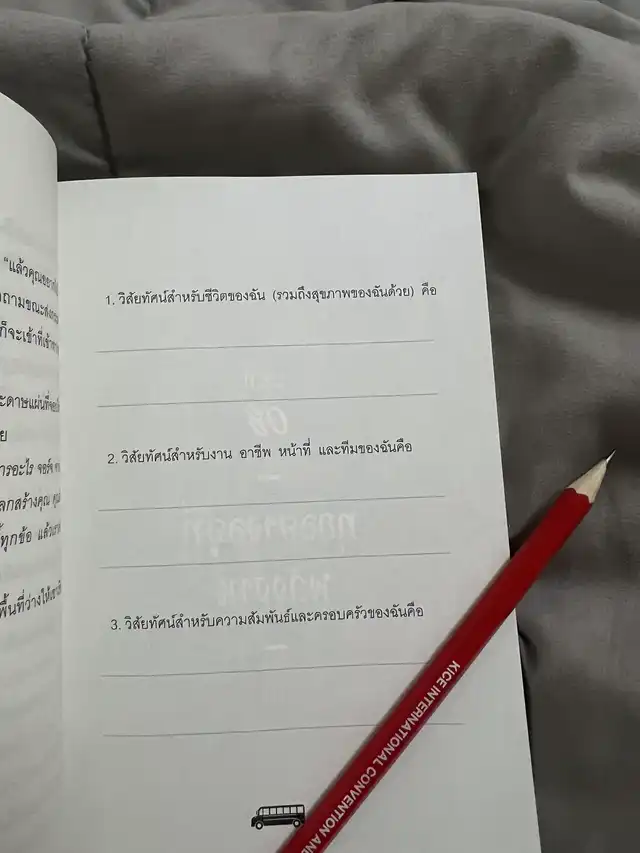 "แล้วคุณอยาก
ถามขณะส่ง
ก็จะเข้าที่เข้าทาง
ะดาษแผ่นที่
ย
ารอะไร จอร์จ
ลกสร้างคุณ
ทุกข้อ แล้ว
พื้นที่ว่างให้
1. วิสัยทัศน์สำหรับชีวิตของฉัน (รวมถึงสุขภาพของฉันด้วย) คือ
2. วิสัยทัศน์สำหรับงาน อาชีพ หน้าที่ และทีมของฉันคือ
3. วิสัยทัศน์สำหรับความสัมพันธ์และครอบครัวของฉันคือ
KICE INTERNATIONAL CONVENTION AND